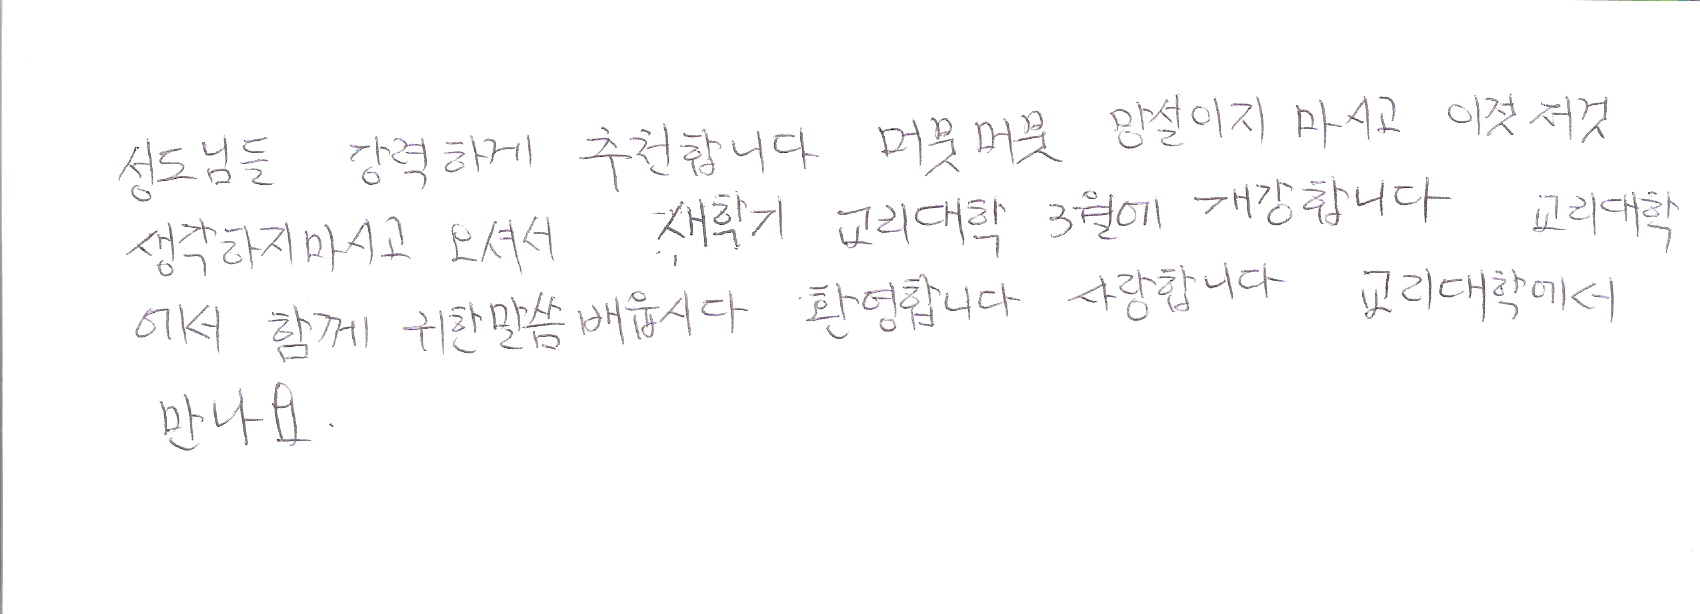 성도님들 강력하게 추천합니다 머뭇머뭇 망설이지 마시고 이젓저것
생각하지마시고 오셔서 새학기 교리대학 3월에 개강합니다 교리대학
에서 함께 귀한말씀배웁시다 환영합니다 사랑합니다 교리대학에서
만나요.